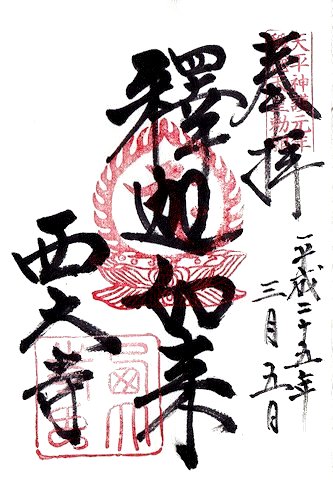 奉拝
平成二十五年
三月五日
釋迦如来
西大寺
天平神護元年